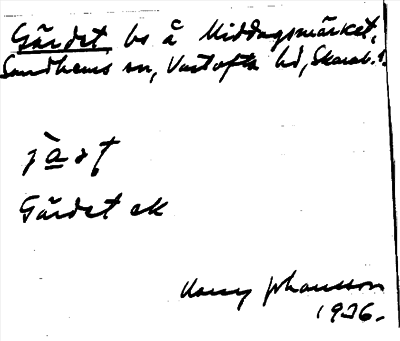 Gärdet, bs å Middagsmärket,
Sandhems sn, Vartofta hd, Skarab. l.
Gärdet ek
Harry Johansson
1936.